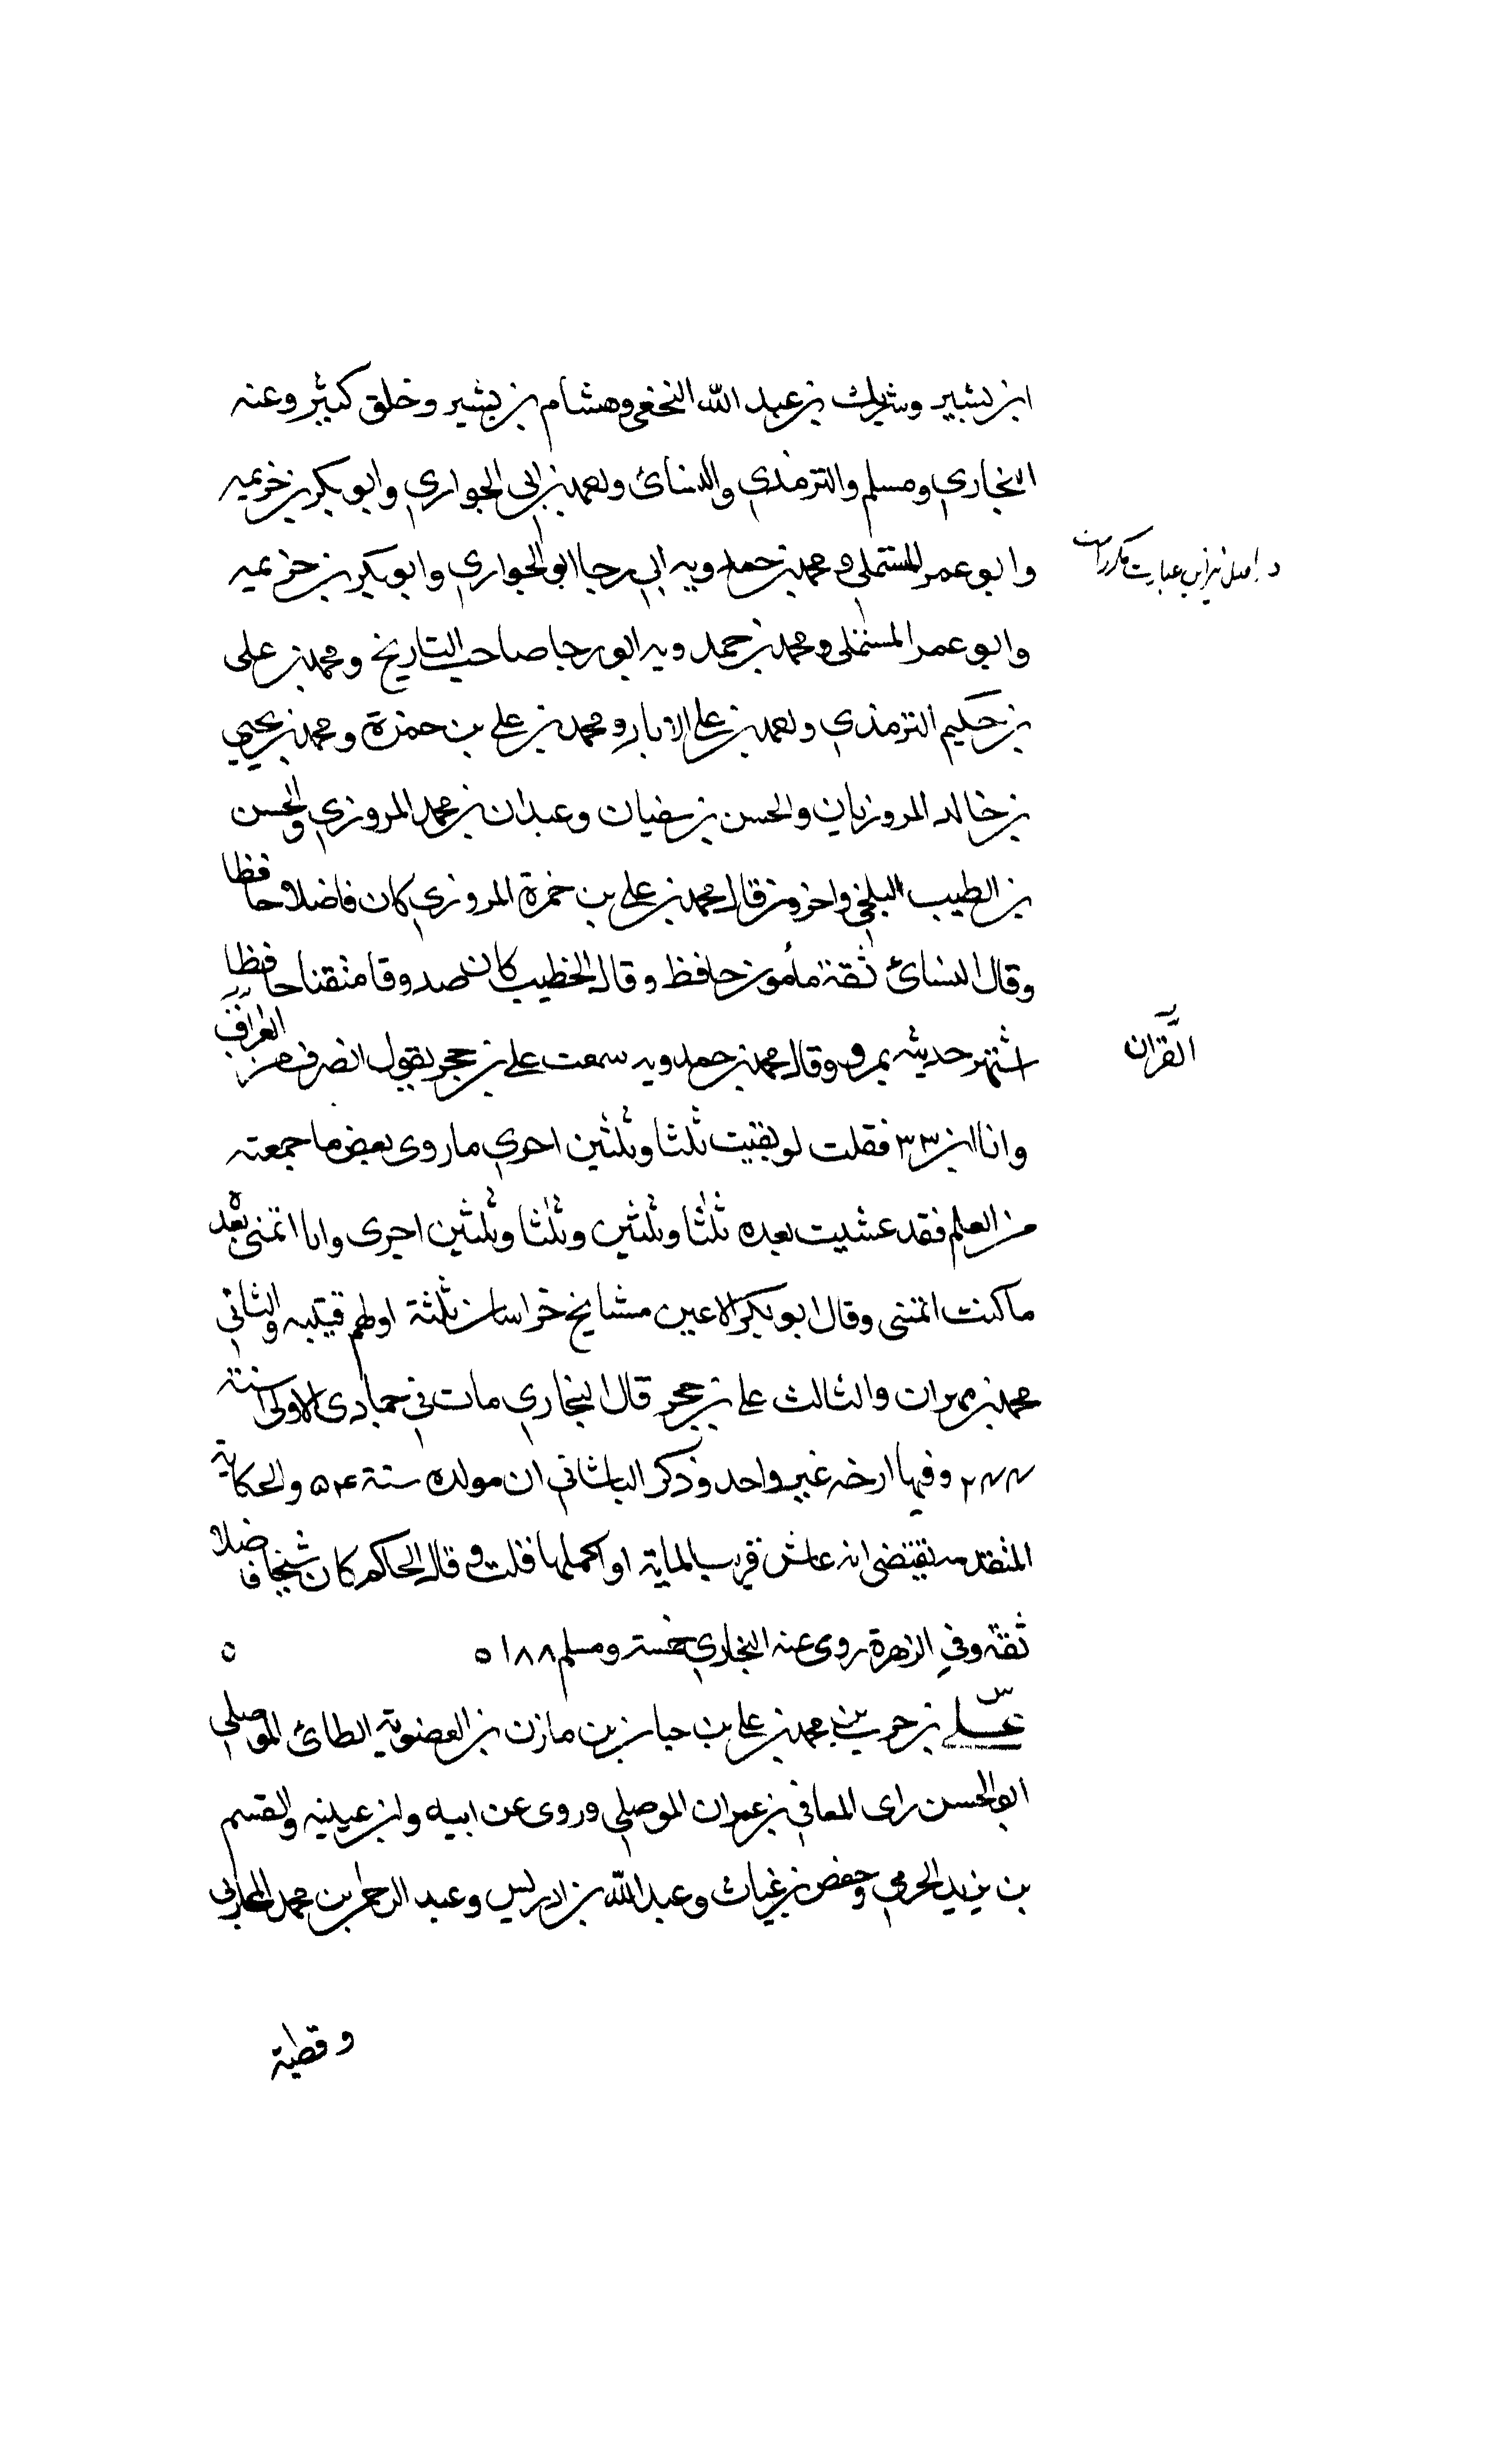 ابن بشير وشريك بن عبد الله النخعى وهشام بن بشير وخلق كثير وعنه
البخاري ومسلم والترمذي والنسائ واحمد بن ابى الحواري وابو بكر بن خزيمه
وابو عمر المستملي ومحمد بن حمدويه ابي رجا ابو الحواري وابو بكر بن خزيمه
در اصل نیز این عبارت مکرر است
وابو عمر المستملى ومحمد بن حمدويه ابو رجا صاحب التاريخ ومحمد بن على
بن حكيم الترمذي واحمد بن على الابار ومحمد بن على بن حمزة ومحمد بن يحيي
بن خالد المروزيان والحسن بن سفيان وعبدان بن محمد المروزي والحسن
بن الطيب البلخي واخرون قال محمد بن على بن حمزة المروزي كان فاضلا حافظا
وقال النسائ ثقة مأمون حافظ وقال الخطيب كان صدوقا متقنا حافظا
اشتهر حديثه بمرو وقال محمد بن حمدويه سمعت على بن حجر يقول انصرفت من العراق
القران
وانا ابن ٣٣ فقلت لو بقيت ثلثا وثلثين اخري ماروى بعض ما جمعته
من العلم فقد عشيت بعده ثلثا وثلثين وثلثا وثلثين اخرى وانا اتمنى بعد
ما كنت اتمنى وقال ابو بكر الاعين مشايخ خراسان ثلثة اولهم قتيبه والثاني
محمد بن مهران والثالث على بن حجر قال البخاري مات في جمادى الاولى سنة
٢٤٤ وفيها ارخه غير واحد وذكر الباشاني ان مولده سنة ٥٤ والحكاية
المتقدمه تقتضى انه عاش قريب الماية او اكملها قلت وقال الحاكم كان شيخا فاضلا
ثقة وفي الزهرة روى عنه البخاري خمسة ومسلم ١٨٨ ٥ ٥
س
على بن حرب بن محمد بن على بن حبان بن مازن بن الغضوبة الطائ الموصلي
ابو الحسن راى المعافي بن عمران الموصلي وروى عن ابيه وابن عيينه والقسم
بن يزيد الجرمي وحفص بن غياث وعبد الله بن ادريس وعبد الرحمن بن محمد المحاربي
وقطبة